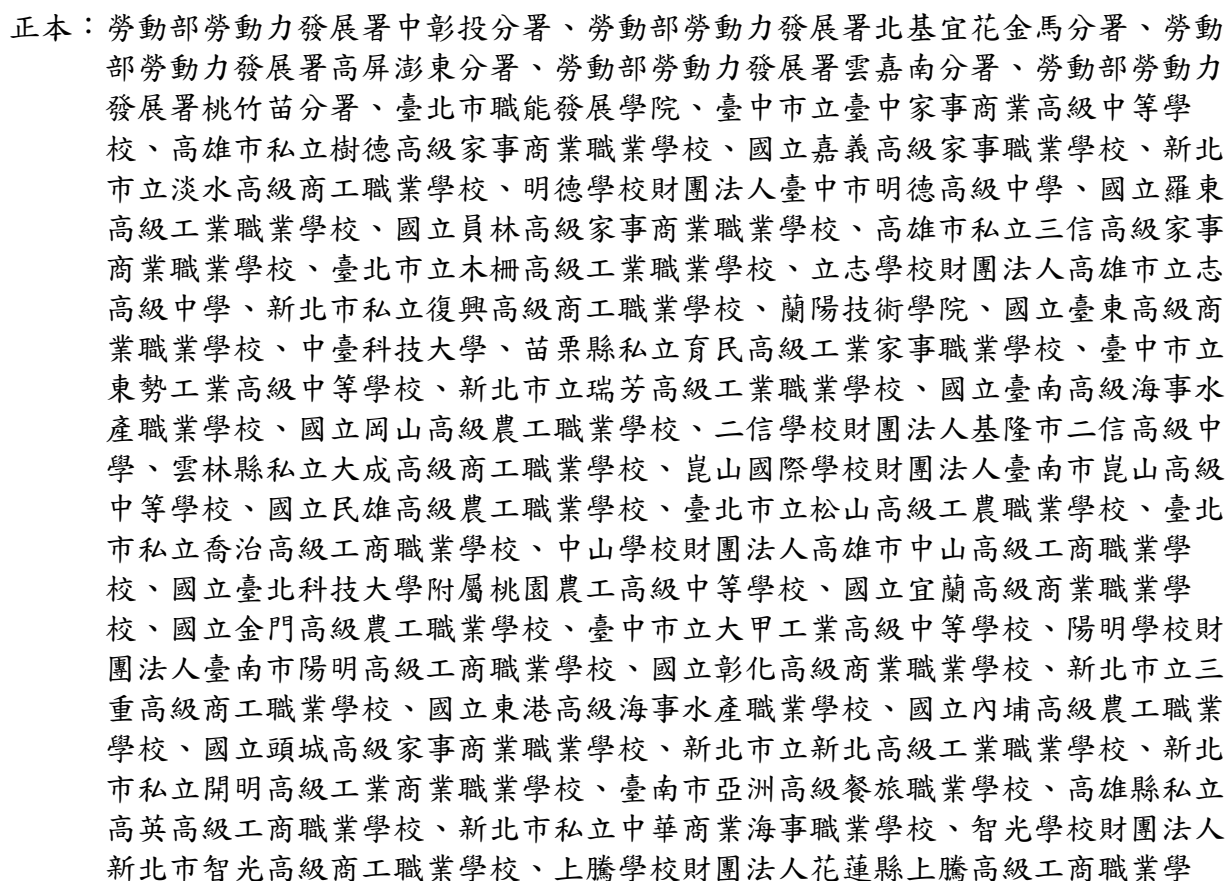 正本：勞動部勞動力發展署中彰投分署、勞動部勞動力發展署北基宜花金馬分署、勞動
部勞動力發展署高屏澎東分署、勞動部勞動力發展署雲嘉南分署、勞動部勞動力
發展署桃竹苗分署、臺北市職能發展學院、臺中市立臺中家事商業高級中等學
校、高雄市私立樹德高級家事商業職業學校、國立嘉義高級家事職業學校、新北
市立淡水高級商工職業學校、明德學校財團法人臺中市明德高級中學、國立羅東
高級工業職業學校、國立員林高級家事商業職業學校、高雄市私立三信高級家事
商業職業學校、臺北市立木柵高級工業職業學校、立志學校財團法人高雄市立志
高級中學、新北市私立復興高級商工職業學校、蘭陽技術學院、國立臺東高級商
業職業學校、中臺科技大學、苗栗縣私立育民高級工業家事職業學校、臺中市立
東勢工業高級中等學校、新北市立瑞芳高級工業職業學校、國立臺南高級海事水
產職業學校、國立岡山高級農工職業學校、二信學校財團法人基隆市二信高級中
學、雲林縣私立大成高級商工職業學校、崑山國際學校財團法人臺南市崑山高級
中等學校、國立民雄高級農工職業學校、臺北市立松山高級工農職業學校、臺北
市私立喬治高級工商職業學校、中山學校財團法人高雄市中山高級工商職業學
校、國立臺北科技大學附屬桃園農工高級中等學校、國立宜蘭高級商業職業學
校、國立金門高級農工職業學校、臺中市立大甲工業高級中等學校、陽明學校財
團法人臺南市陽明高級工商職業學校、國立彰化高級商業職業學校、新北市立三
重高級商工職業學校、國立東港高級海事水產職業學校、國立內埔高級農工職業
學校、國立頭城高級家事商業職業學校、新北市立新北高級工業職業學校、新北
市私立開明高級工業商業職業學校、臺南市亞洲高級餐旅職業學校、高雄縣私立
高英高級工商職業學校、新北市私立中華商業海事職業學校、智光學校財團法人
新北市智光高級商工職業學校、上騰學校財團法人花蓮縣上騰高級工商職業學